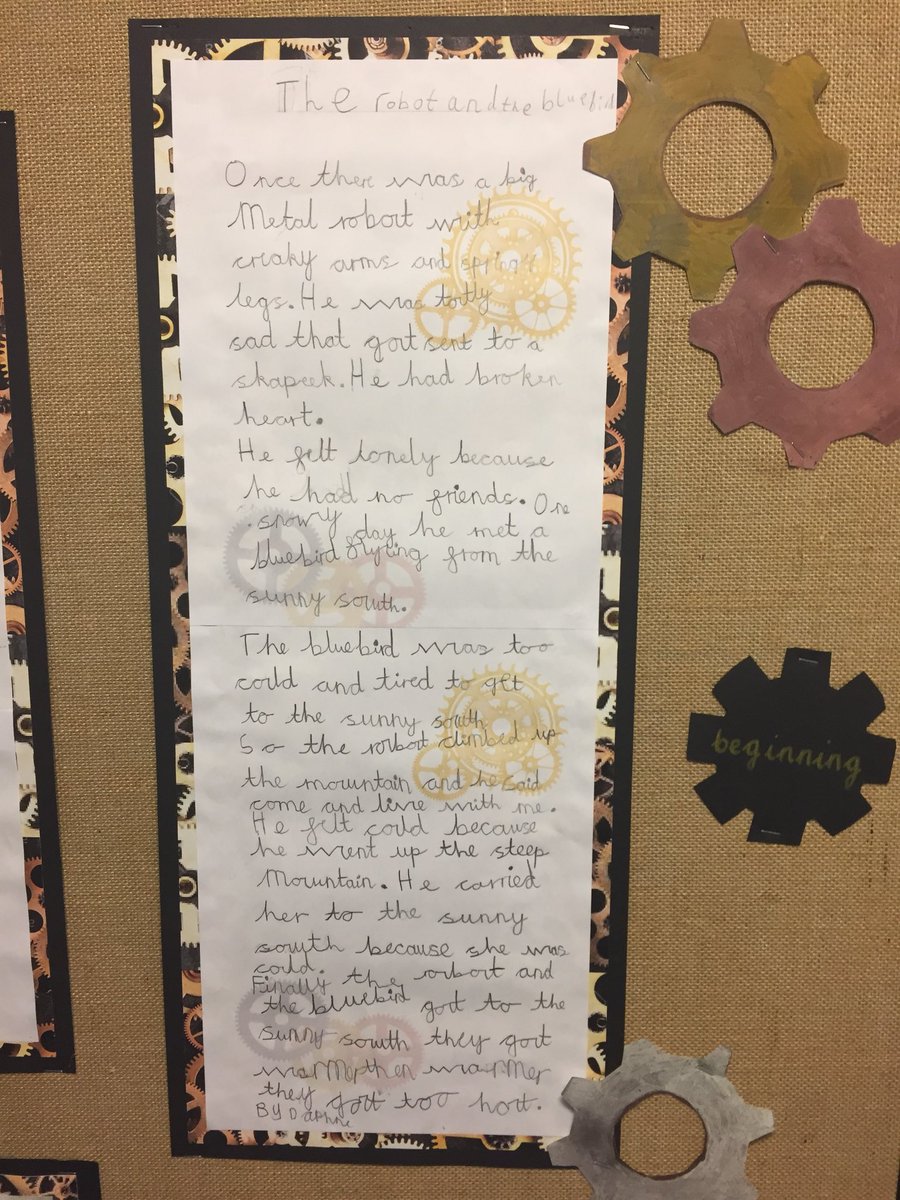 The robot and the bluebird
Once there was a big
Metal robot with
creaky arms and springy
legs. He was tortly
sad that gort sent to a
skapeek. He had broken
heart.
He felt lonely because
he had no friends. One
snowy day he met a
bluebird flying from the
sunny south.
The bluebird was too
cold and tired to get
to the sunny south
So the robot climbed up
the mountain and he said
come and live with me.
He felt cold because
he went up the steep
Mountain. He carried
her to the sunny
south because she was
cold.
Finally the robort and
the bluebird got to the
sunny south they got
warmer then warmer
they got too hot.
By Daphne
beginning